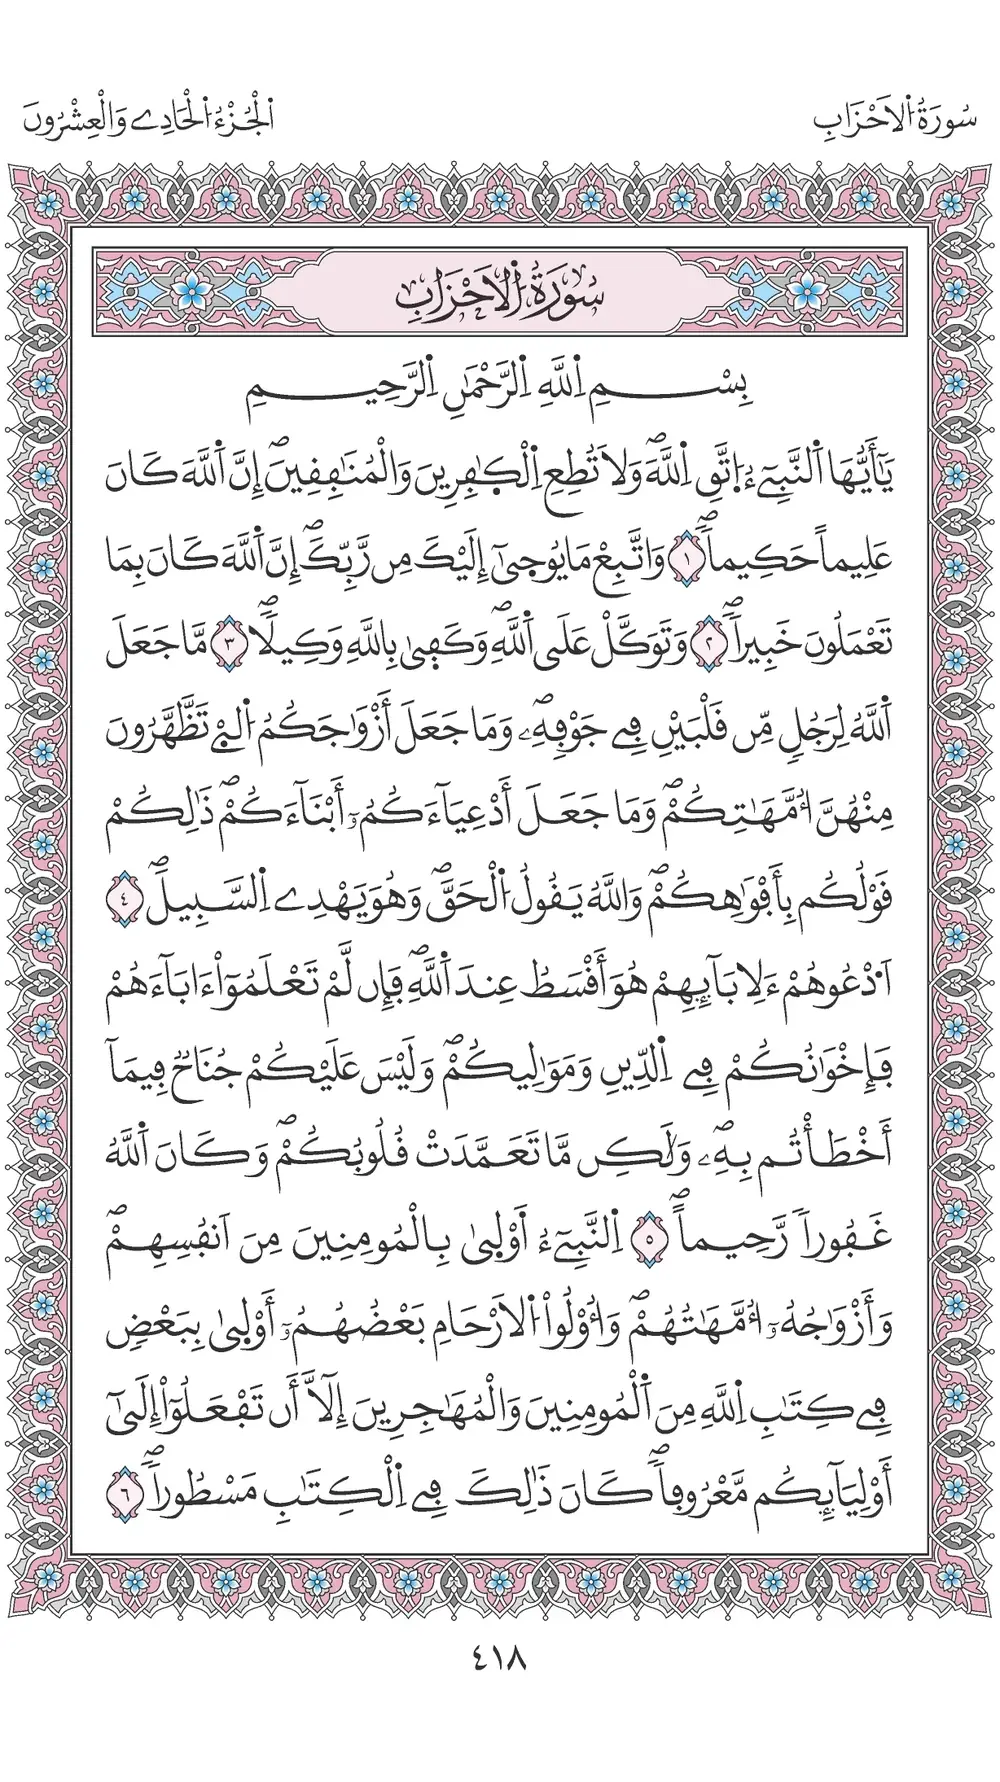 سُورَةُ الَاحْزَابِ
اَلْجُزْءُ الْحَادِے وَالْعِشْرُونَ
سُورَةُ الَاحْزَابِ
بِسْمِ اِللَّهِ اِلرَّحْمَٰنِ اِلرَّحِيمِ
يَٰٓأَيُّهَا اَلنَّبِےٓءُ اِتَّقِ اِللَّهَۖ وَلَا تُطِعِ اِلْكٰ۪فِرِينَ وَالْمُنَٰفِقِينَۖ إِنَّ اَللَّهَ كَانَ
عَلِيماً حَكِيماٗۖ ١ وَاتَّبِعْ مَا يُوح۪يٰٓ إِلَيْكَ مِن رَّبِّكَۖ إِنَّ اَللَّهَ كَانَ بِمَا
تَعْمَلُونَ خَبِيراٗۖ ٢ وَتَوَكَّلْ عَلَى اَللَّهِۖ وَكَف۪يٰ بِاللَّهِ وَكِيلاٗۖ ٣ مَّا جَعَلَ
اَللَّهُ لِرَجُلٖ مِّن قَلْبَيْنِ فِے جَوْفِهِۦۖ وَمَا جَعَلَ أَزْوَٰجَكُمُ اُلَّٰٓـِۓ تَظَّهَّرُونَ
مِنْهُنَّ أُمَّهَٰتِكُمْۖ وَمَا جَعَلَ أَدْعِيَآءَكُمُۥٓ أَبْنَآءَكُمْۖ ذَٰلِكُمْ
قَوْلُكُم بِأَفْوَٰهِكُمْۖ وَاللَّهُ يَقُولُ اُلْحَقَّۖ وَهُوَ يَهْدِے اِلسَّبِيلَۖ ٤
اَ۟دْعُوهُمْ ءَلِابَآئِهِمْ هُوَ أَقْسَطُ عِندَ اَللَّهِۖ فَإِن لَّمْ تَعْلَمُوٓاْ ءَابَآءَهُمْ
فَإِخْوَٰنُكُمْ فِے اِلدِّينِ وَمَوَٰلِيكُمْۖ وَلَيْسَ عَلَيْكُمْ جُنَاحٞ فِيمَآ
أَخْطَأْتُم بِهِۦۖ وَلَٰكِن مَّا تَعَمَّدَتْ قُلُوبُكُمْۖ وَكَانَ اَللَّهُ
غَفُوراٗ رَّحِيماًۖ ٥ اِلنَّبِےٓءُ أَوْل۪يٰ بِالْمُومِنِينَ مِنَ اَنفُسِهِمْۖ
وَأَزْوَٰجُهُۥٓ أُمَّهَٰتُهُمْۖ وَأُوْلُواْ اُلَارْحَامِ بَعْضُهُمُۥٓ أَوْل۪يٰ بِبَعْضٖ
فِے كِتَٰبِ اِللَّهِ مِنَ اَلْمُومِنِينَ وَالْمُهَٰجِرِينَ إِلَّآ أَن تَفْعَلُوٓاْ إِلَيٰٓ
أَوْلِيَآئِكُم مَّعْرُوفاٗۖ كَانَ ذَٰلِكَ فِے اِلْكِتَٰبِ مَسْطُوراٗۖ ٦
٤١٨